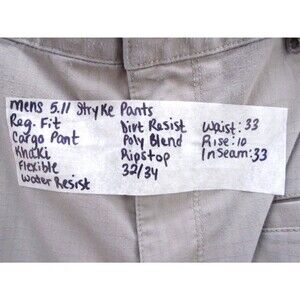 mens 5.11 Stryke Pants
Reg. Fit
Cargo Pant
Khaki
Flexible
Water Resist
Dirt Resist
Poly Blend
Ripstop
32/34
Waist: 33
Rise: 10
Inseam: 33